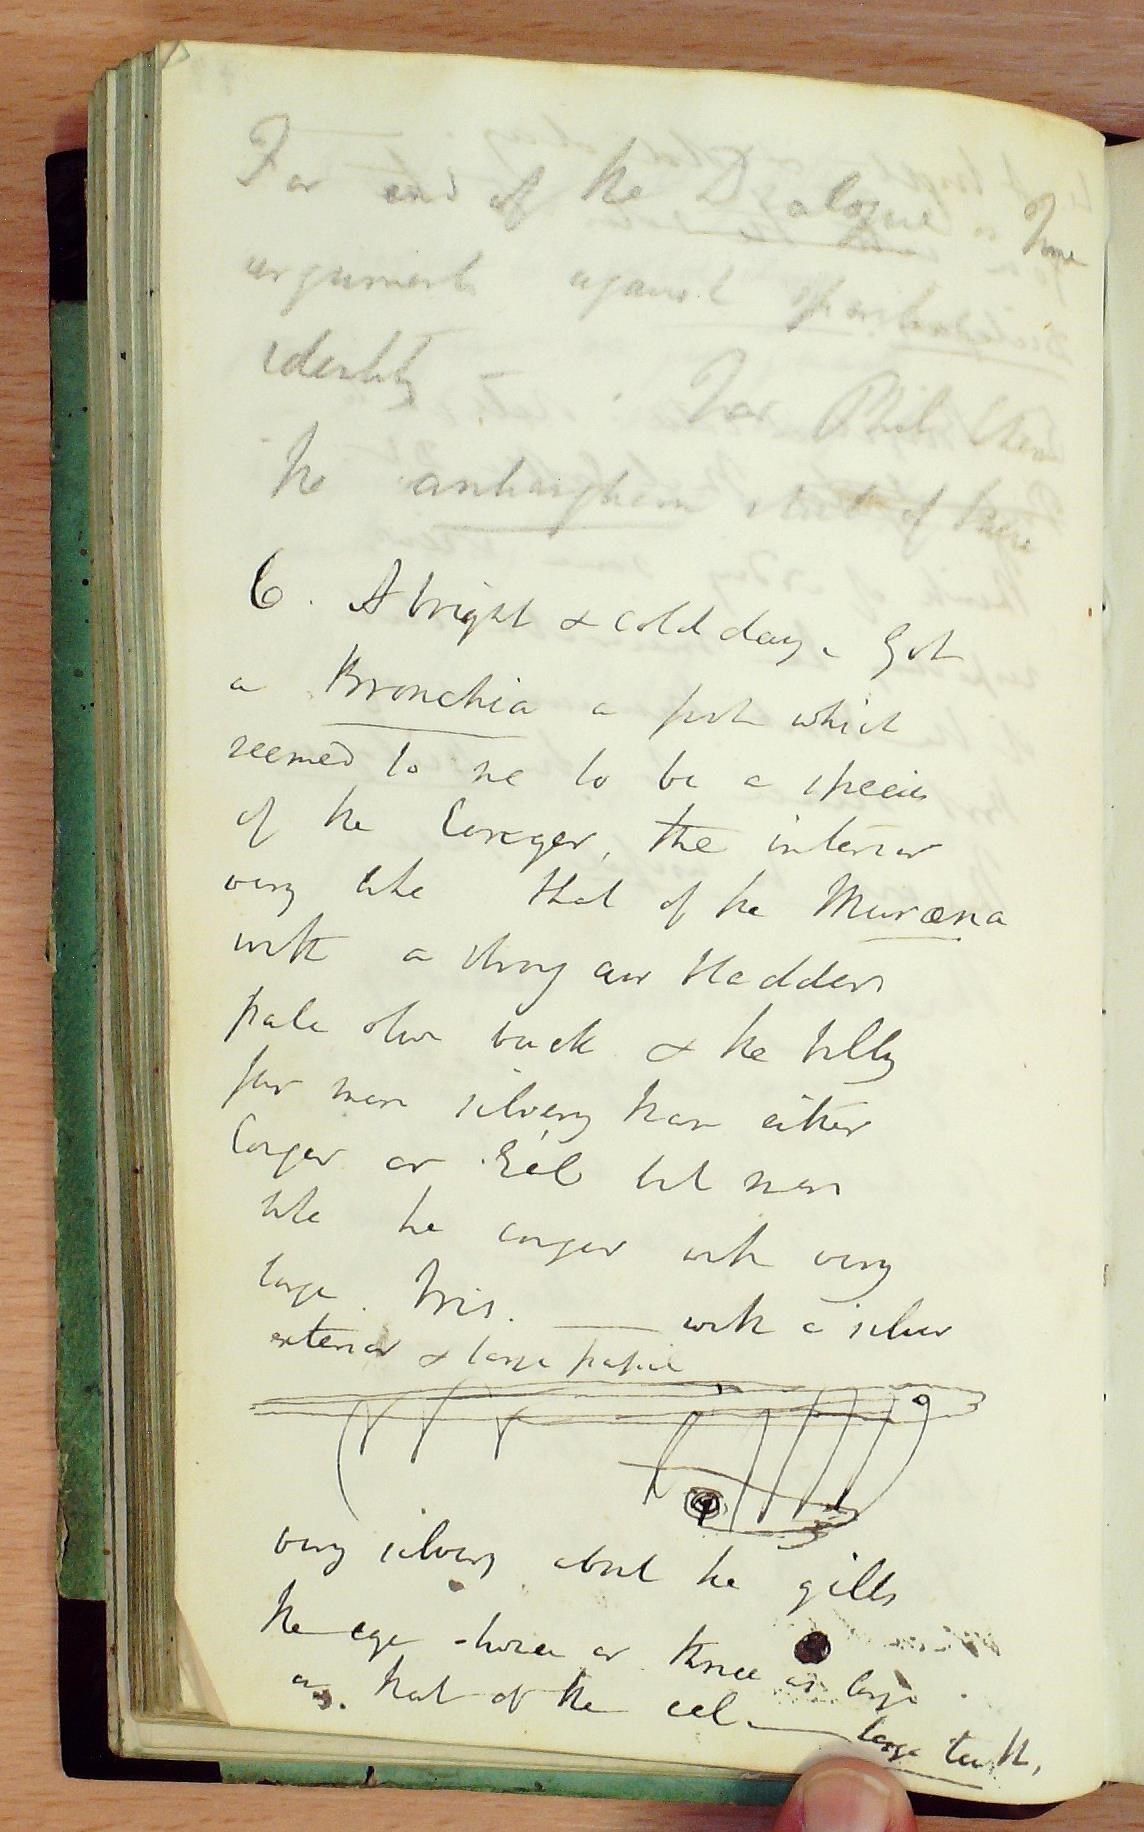 For end of the Dialogue
arguments against
identity - For Phil
the state of
6. A bright & cold day. Got
a Bronchia a fish which
seemed to me to be a species
of the Conger, the interior
very like that of the Muræna
with a strong air bladder
pale olive back & the belly
far more silvery than either
Conger or Eel but more
like the conger with very
large Iris. — with a silver
exterior & large pupil
very silvery about the gills
the eye twice or three as large
as that of the eel — large teeth,